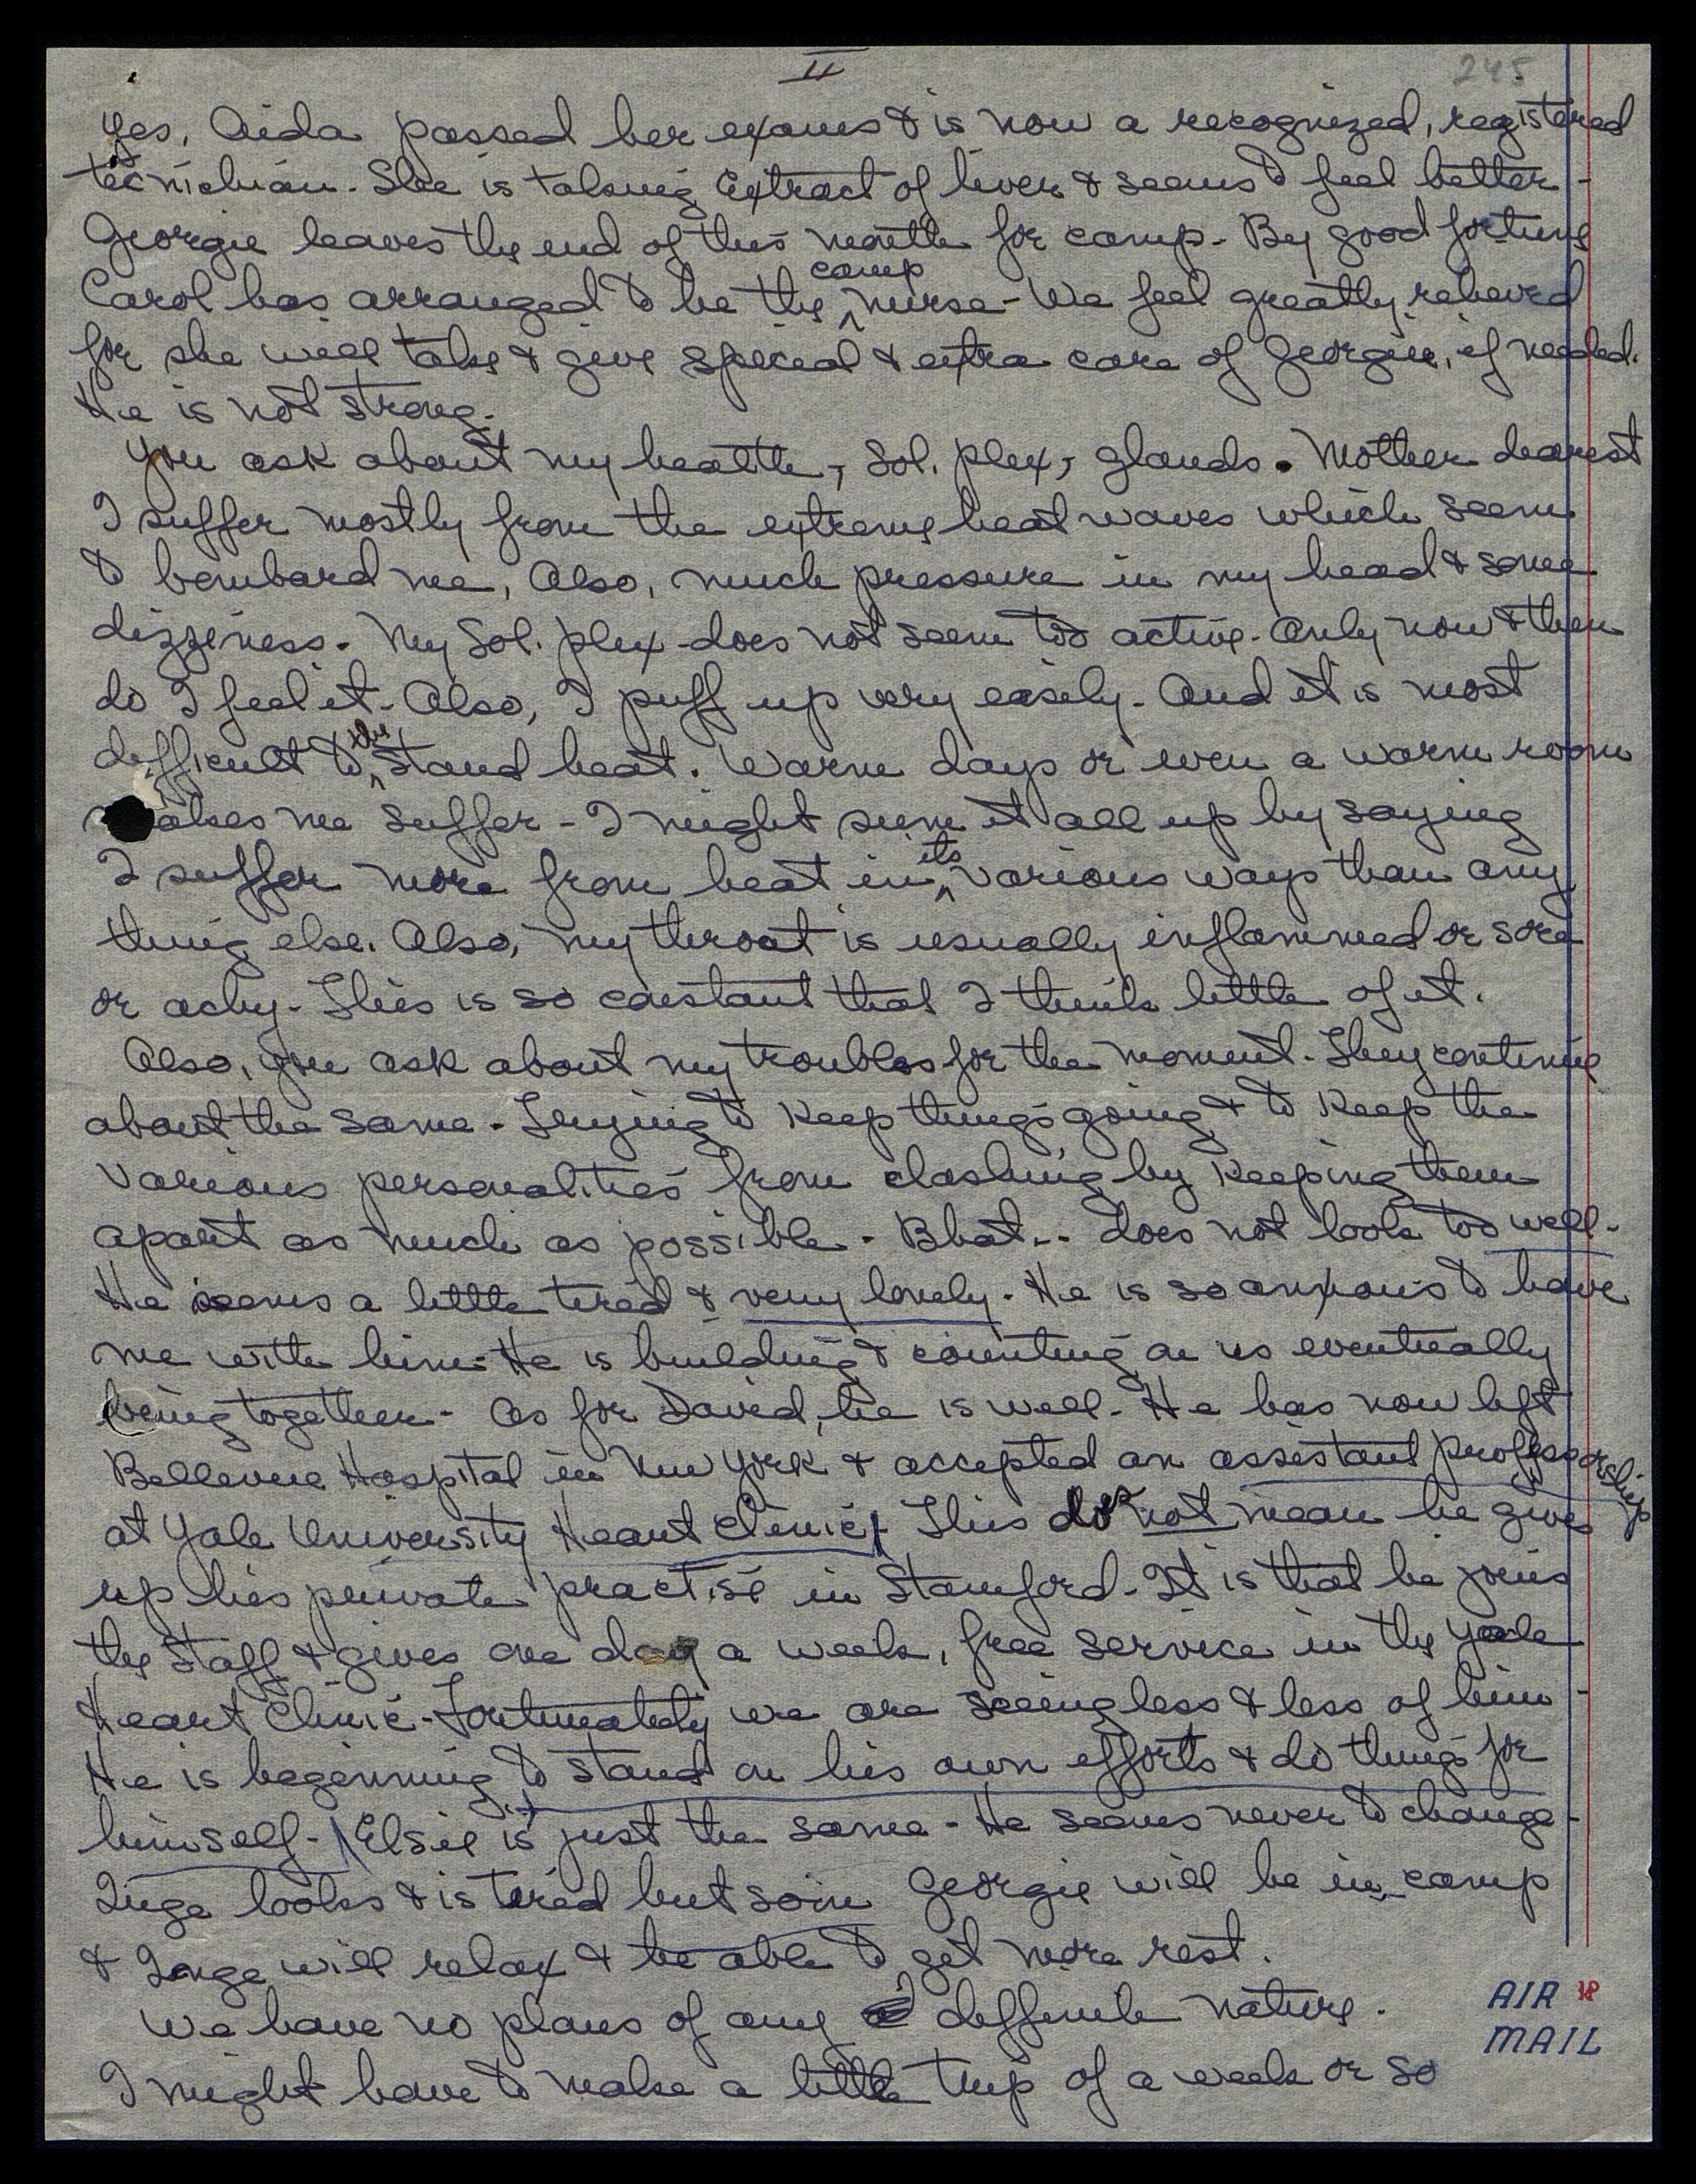 II
245
Yes, Aida passed her exams & is now a recognized, registered
tecnichian. She is taking Extract of liver & seems to feel better -
Georgie leaves the end of this month for camp. By good fortune
Carol has arranged to be the camp nurse - We feel greatly relieved
for she will take & give special & extra care of Georgie, if needed.
He is not strong.
You ask about my health, Sol. plex, glands. Mother dearest
I suffer mostly from the extreme heat waves which seem
to bombard me, Also, much pressure in my head & some
dizziness. My Sol. plex - does not seem too active. Only now & then
do I feel it. Also, I puff up very easily. And it is most
difficult to stand heat. Warm days or even a warm room
makes me suffer - I might sum it all up by saying
I suffer more from heat in its various ways than any
thing else. Also, my throat is usually inflammed or sore
or achy - This is so constant that I think little of it.
Also, you ask about my troubles for the moment. They continue
about the same. Trying to keep things going & to keep the
various personalities from clashing by keeping them
apart as much as possible. Bhat.. does not look too well.
He seems a little tired & very lonely. He is so anxious to have
me with him. He is building & counting on us eventually
being together. As for David, he is well. He has now left
Bellevue Hospital in New York & accepted an assistant professorship
at Yale University Heart Clinic. This does not mean he gives
up his private practise in Stamford. It is that he joins
the staff & gives one day a week, free service in the Yale
Heart Clinic. Fortunately we are seeing less & less of him -
He is beginning to stand on his own efforts & do things for
himself. Elsie is just the same. He seems never to change.
Inga looks & is tired but soon Georgie will be in camp
& Inga will relax & be able to get more rest.
We have no plans of any deffinite nature.
I might have to make a little trip of a week or so
AIR
MAIL